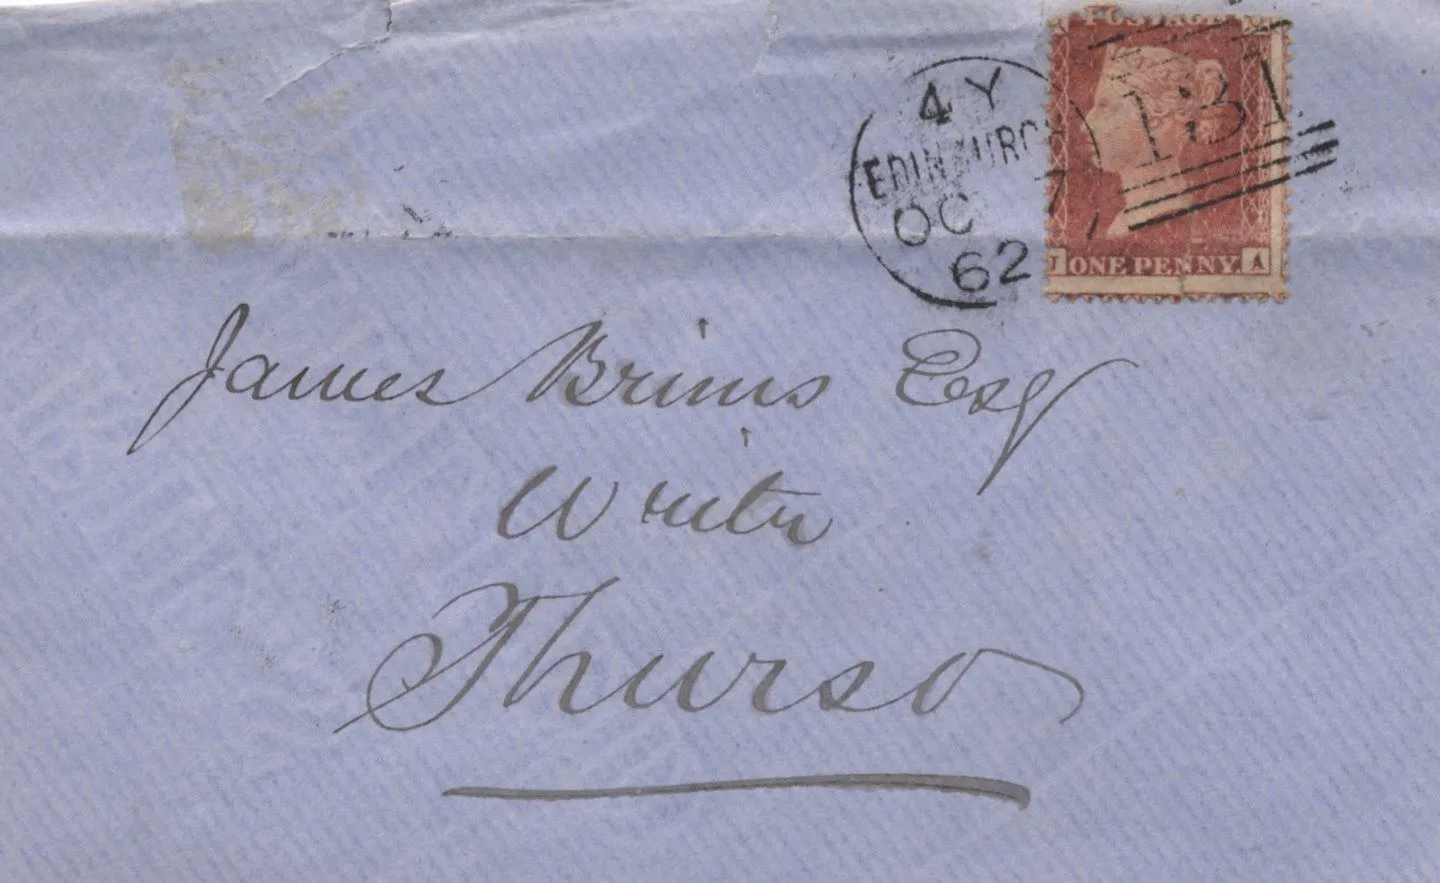 POSTAGE
131
4 Y
EDINBURGH
OC
62
J ONE PENNY. A
James Brims Esq
Writer
Thurso